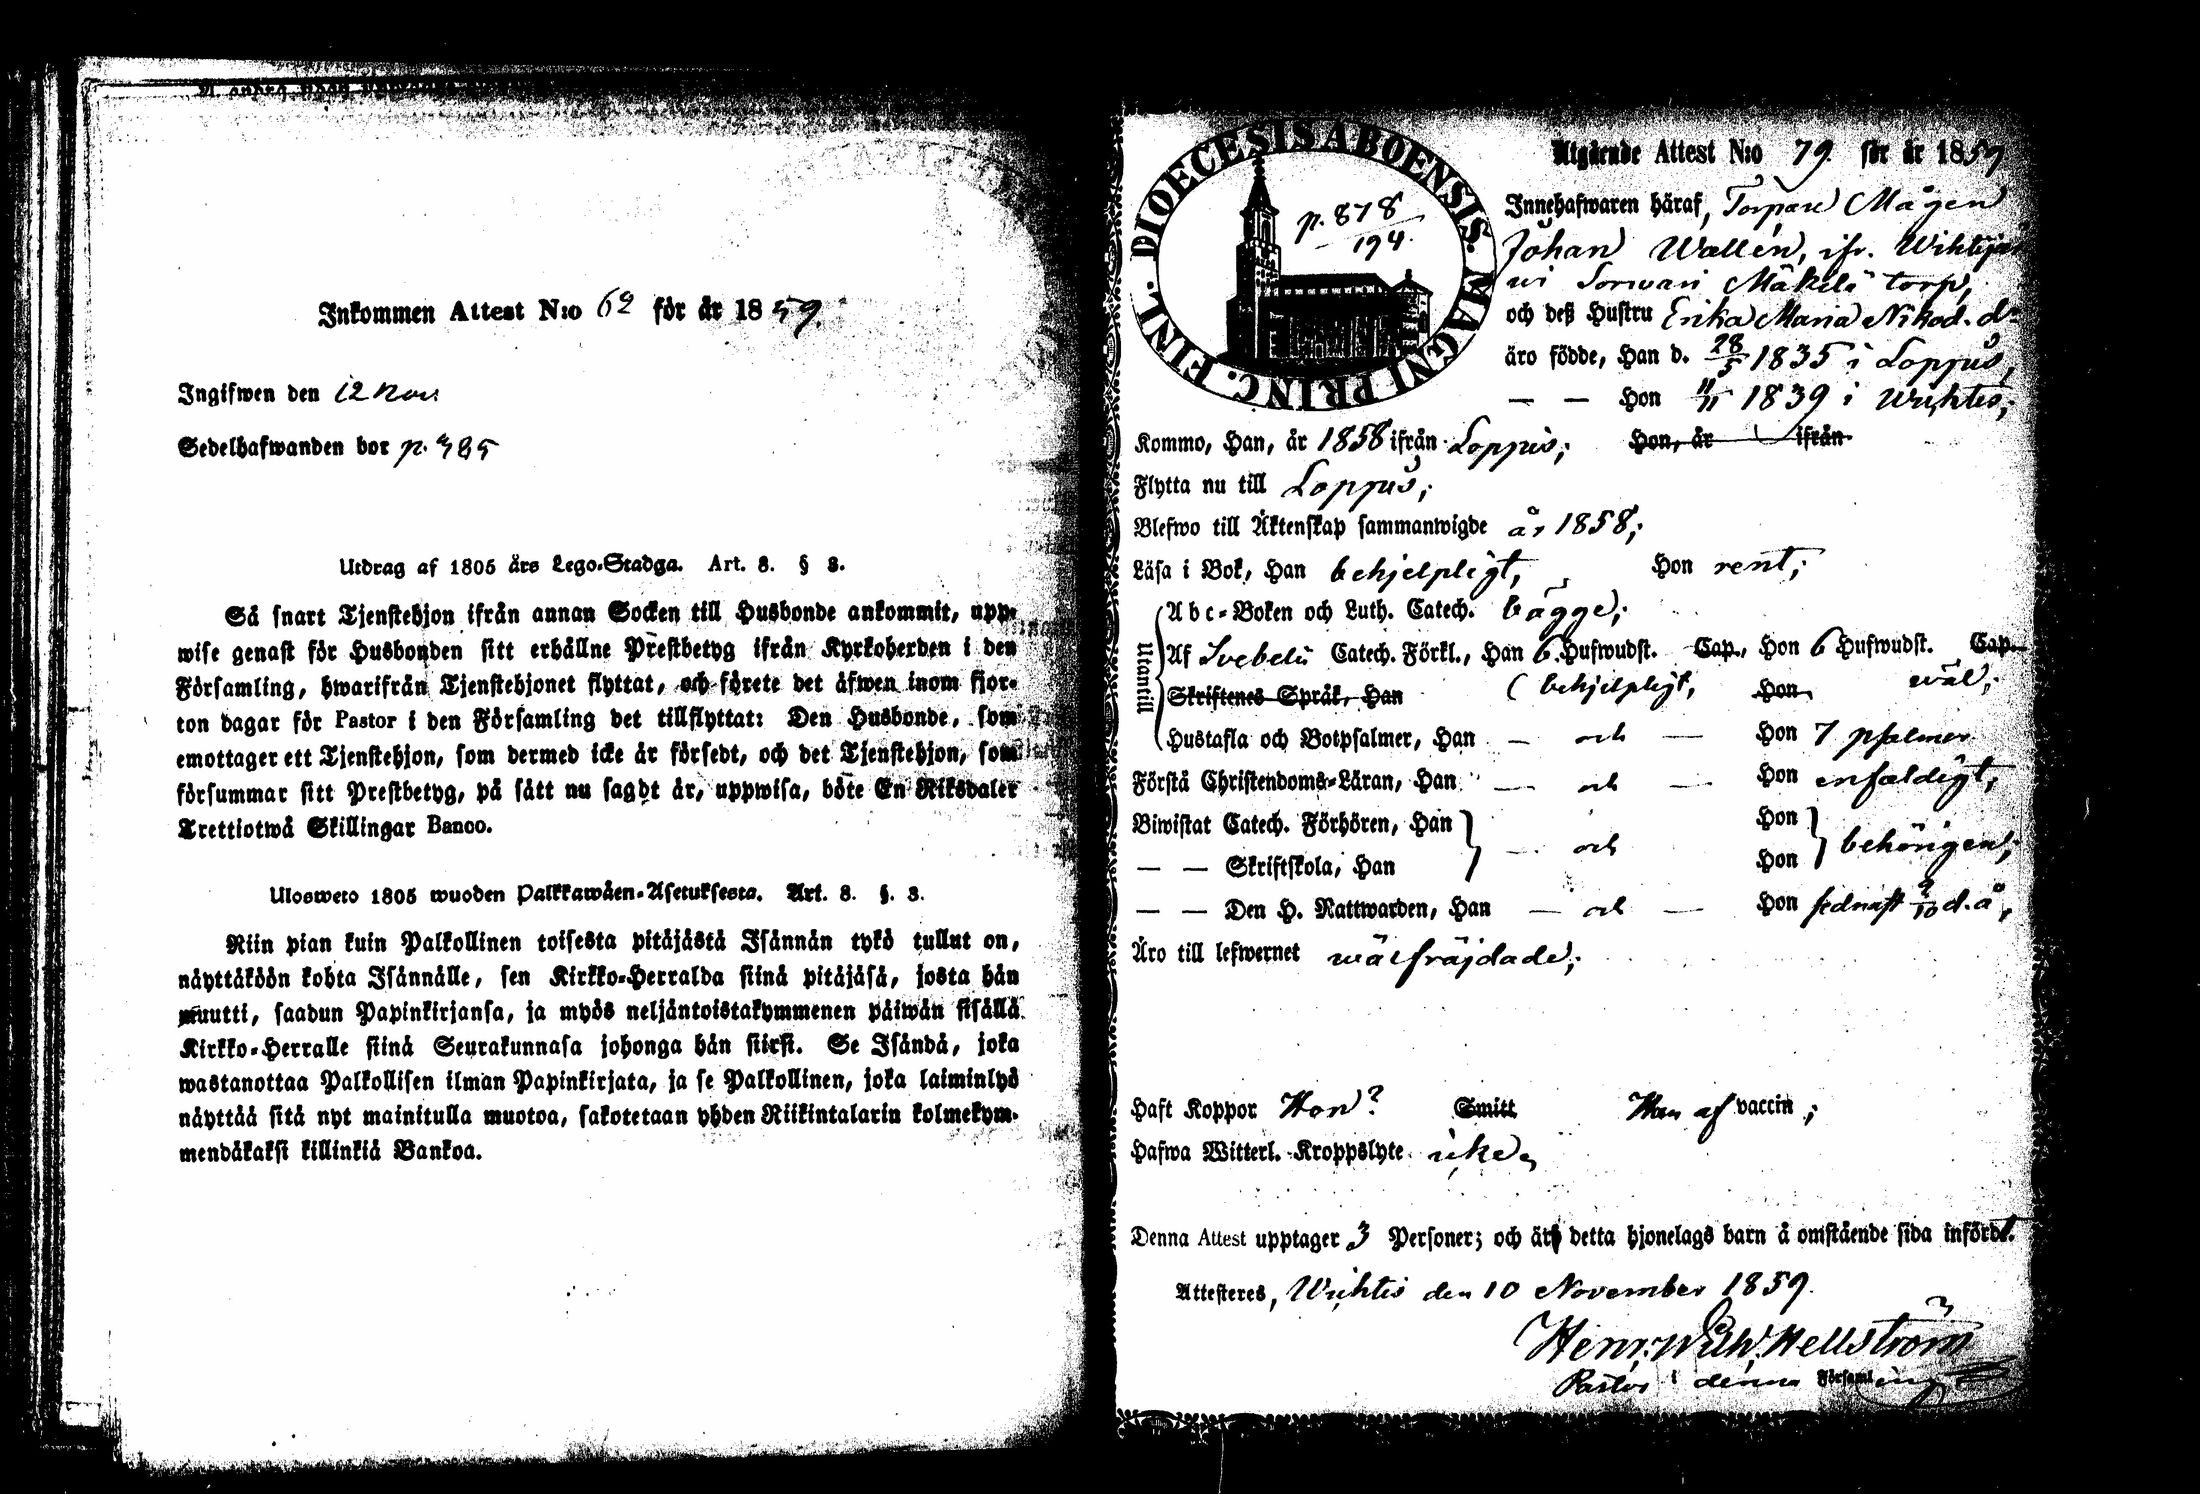 Inkommen Attest N:o 62 för år 1859.
Ingifwen den 12 Nov.
Sedelhafwanden bor p. 385
Utdrag af 1805 års Lego-Stadga. Art. 8. § 3.
Så snart Tjenstehjon ifrån annan Socken till Husbonde ankommit, upp-
wise genast för Husbonden sitt erhållne Prestbetyg ifrån Kyrkoherden i den
Församling, hwarifrån Tjenstehjonet flyttat, och förete det äfwen inom fjor-
ton dagar för Pastor i den Församling det tillflyttat: Den Husbonde, som
emottager ett Tjenstehjon, som dermed icke är försedt, och det Tjenstehjon, som
försummar sitt Prestbetyg, på sätt nu sagdt är, uppwisa, böte En Riksdaler
Trettiotwå Skillingar Banco.
Ulosweto 1805 wuoden Palkkawäen-Asetuksesta. Art. 8. §. 3.
Niin pian kuin Palkollinen toisesta pitäjästä Isännän tykö tullut on,
näyttäköön kohta Isännälle, sen Kirkko-Herralda siinä pitäjäsä, josta hän
muutti, saadun Papinkirjansa, ja myös neljäntoistakymmenen päiwän sisällä
Kirkko-Herralle siinä Seurakunnasa johonga hän siirsi. Se Isändä, joka
wastanottaa Palkollisen ilman Papinkirjata, ja se Palkollinen, joka laiminlyö
näyttää sitä nyt mainitulla muotoa, sakotetaan yhden Riikintalarin kolmekym-
mendäkaksi killinkiä Bankoa.
DIOECESIS ABOENSIS. MAGNI PRINC. FINL.
p. 878
194.
Utgående Attest N:o 79. för år 1859
Innehafwaren häraf, Torpare Mågen
Johan Wallén, ifr. Wihtijär
wi Mäkelä torp,
och deß Hustru Erika Maria Nikod. dr
äro födde, Han d. 28/5 1835 i Loppis,
— — Hon 11/11 1839 i Wichtis;
Kommo, Han, år 1858 ifrån Loppis; Hon, år ifrån
Flytta nu till Loppis;
Blefwo till Äktenskap sammanwigde år 1858;
Läsa i Bok, Han behjelpligt, Hon rent;
Utantill
Abc-Boken och Luth. Catech. bägge;
Af Svebelii Catech. Förkl., Han 6 Hufwudst. Cap., Hon 6 Hufwudst. Cap.
Skriftenes Språk, Han (behjelpligt, Hon, wäl;
Hustafla och Botpsalmer, Han — och — Hon 7 psalmer
Förstå Christendoms-Läran, Han — och — Hon enfaldigt,
Biwistat Catech. Förhören, Han — och Hon behörigen;
— — Skriftskola, Han Hon
— — Den H. Nattwarden, Han — och — Hon sednast 9/10 d. å,
Äro till lefwernet wälfräjdade;
Haft Koppor Hon? Smitt Han af vaccin;
Hafwa Witterl. Kroppslyte icke,
Denna Attest upptager 3 Personer; och är detta hjonelags barn å omstående sida infördt.
Attesteres, Wichtis den 10 November 1859.
Henr. Wilh. Hellström
Pastor i denna Församling